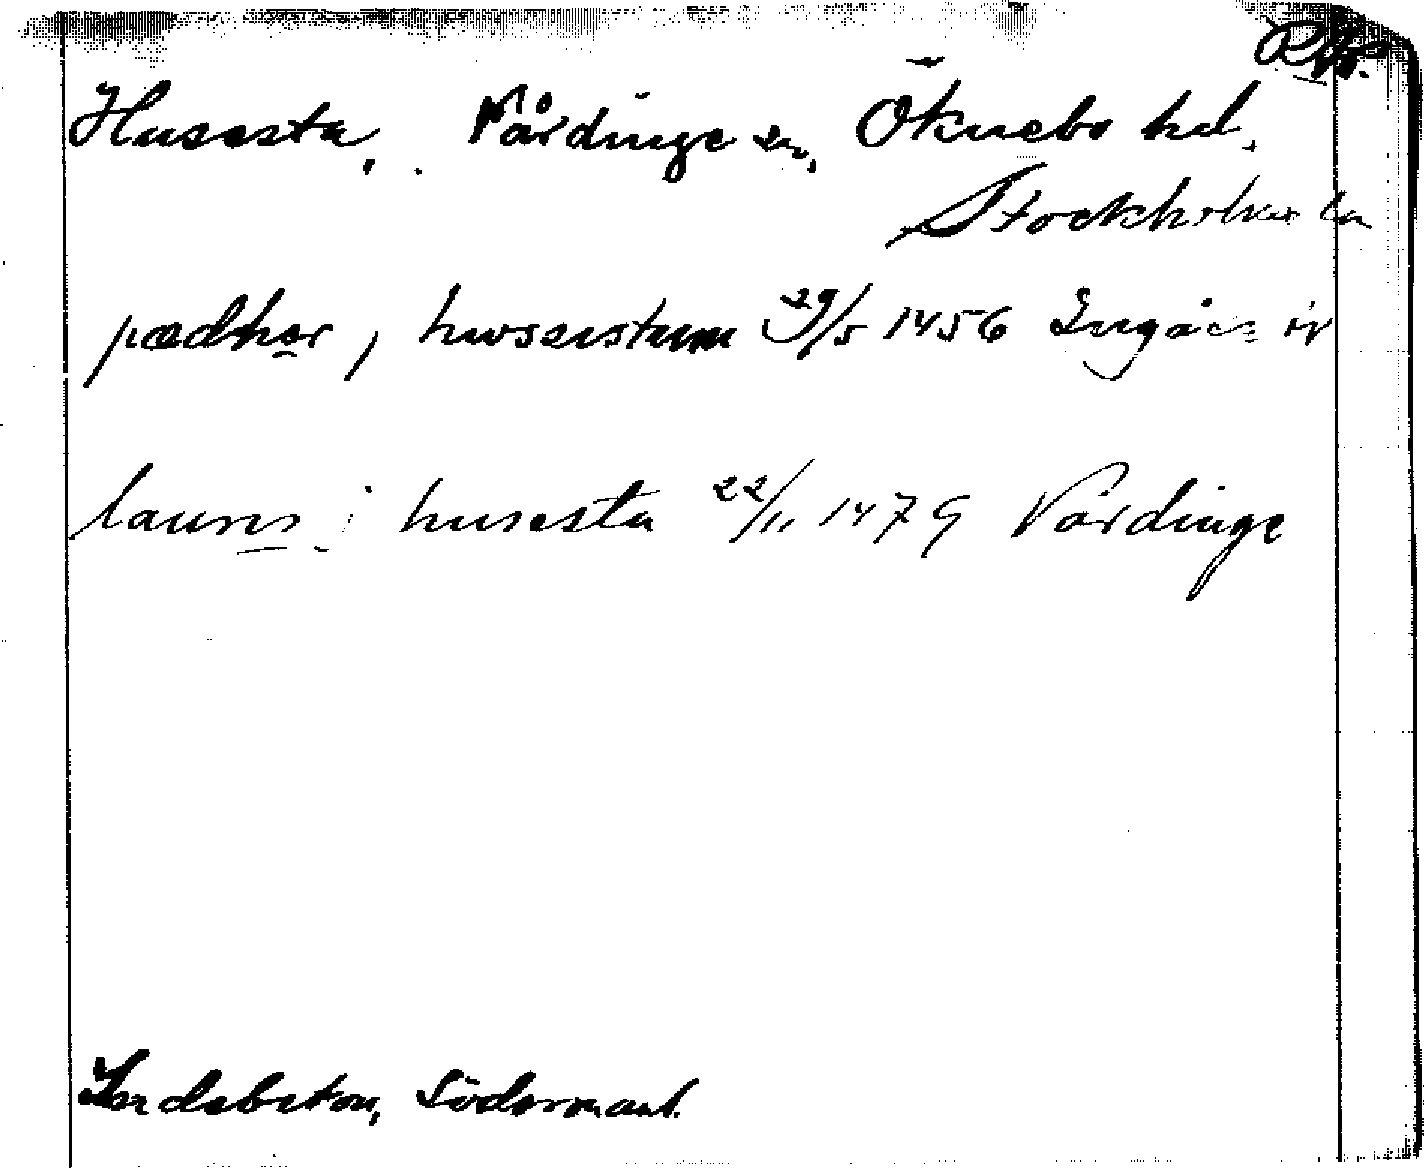 Husesta, Vårdinge sn, Öknebo hd,
Stockholms län
pædher j hwsæstum 29/5 1456 Ingår i nr
laurns i husesta 22/11 1479 Vårdinge
Jordeboken, Södermanl.